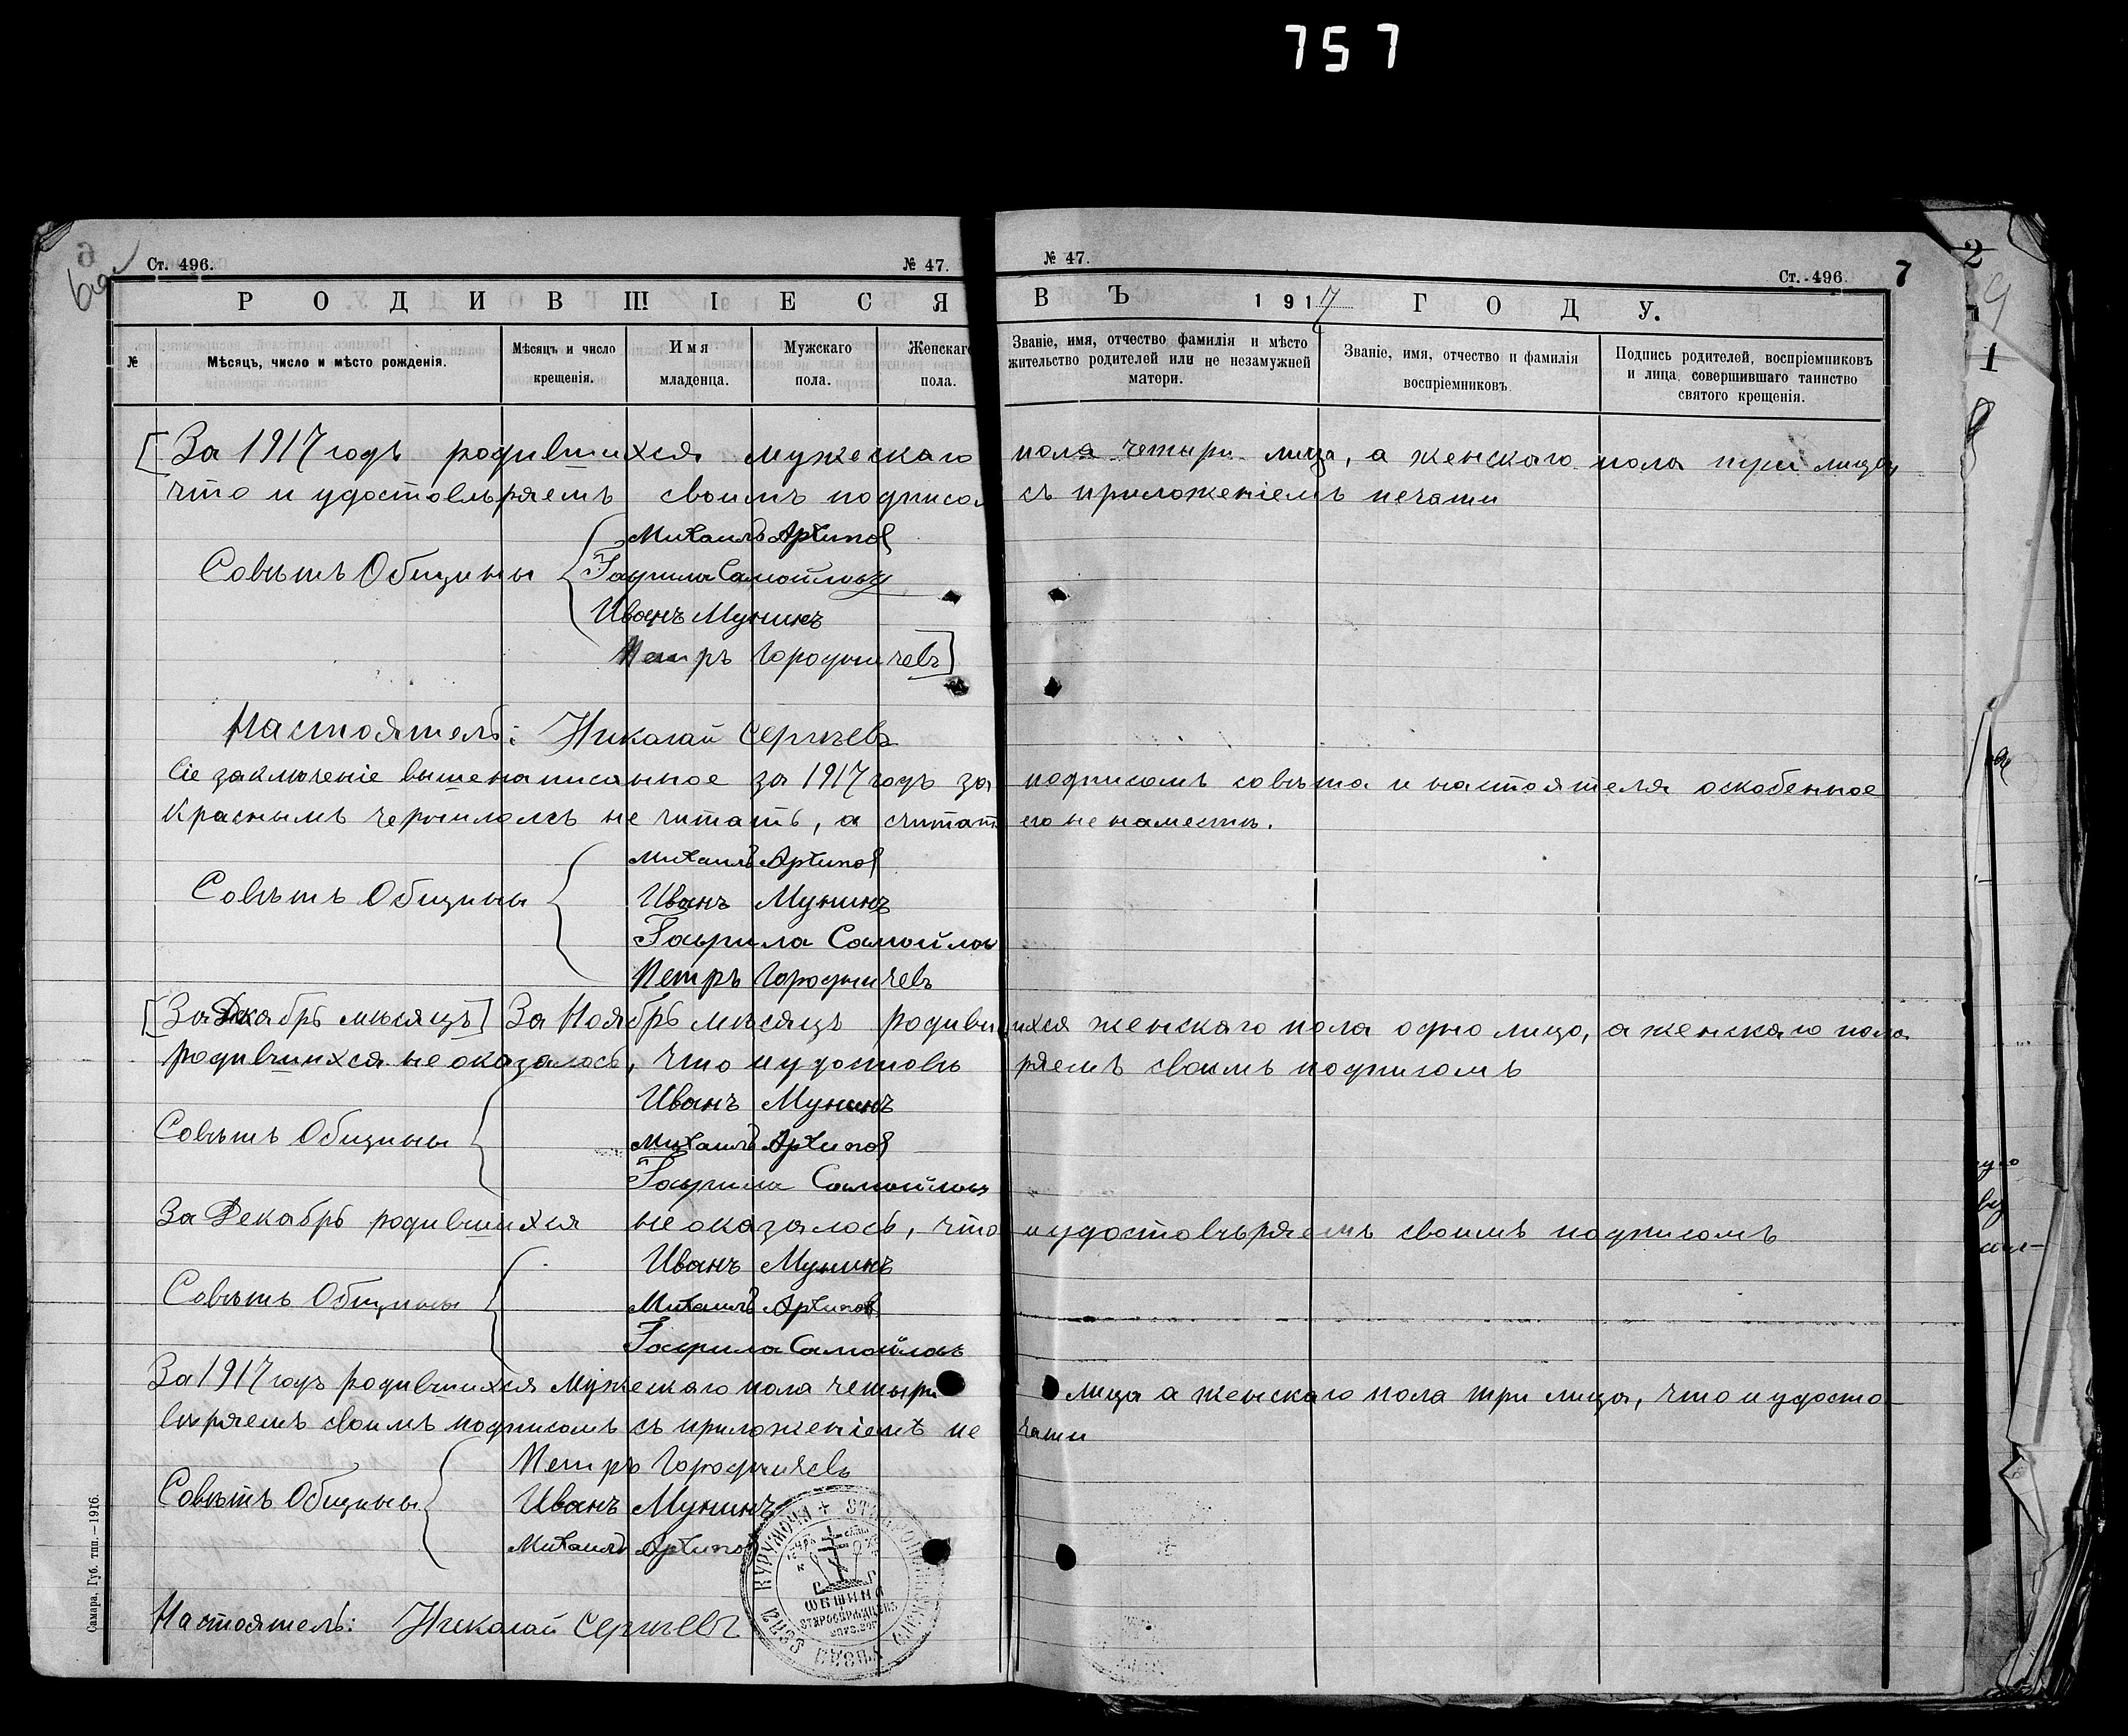 757
Ст. 496.
№ 47.
№ 47.
Ст. 496.
7
2
1
РОДИВШІЕСЯ
ВЪ 1917 ГОДУ.
№
Мѣсяцъ, число и мѣсто рожденія.
Мѣсяцъ и число крещенія.
Имя младенца.
Мужскаго пола.
Женскаго пола.
Званіе, имя, отчество фамилія и мѣсто жительство родителей или не незамужней матери.
Званіе, имя, отчество и фамилія воспріемниковъ.
Подпись родителей, воспріемниковъ и лица совершившаго таинство святого крещенія.
[За 1917 годъ родившихся мужескаго пола четыри лица, а женскаго пола три лица,
что и удостовѣряемъ своимъ подписом съ приложеніемъ печати
Михаилъ Архипов
Совѣтъ Общины { Гаврила Самойловъ
Иванъ Мунинъ
Петръ Городничевъ]
Настоятель: Николай Сергѣевъ
Сіе заключеніе вышенаписанное за 1917 годъ за подписомъ совѣта и настоятеля оскобенное
Краснымъ черниломъ не читать, а считать его не наместѣ.
Михаилъ Архипов
Совѣтъ Общины { Иванъ Мунинъ
Гаврила Самойлов
Петръ Городничевъ
[За Декабрь мѣсяцъ] За Ноябрь мѣсяцъ родившихся женскаго пола одно лицо, а женскаго пола
родившихся не оказалось, что и удостовѣряемъ своимъ подписомъ
Иванъ Мунинъ
Совѣтъ Общины { Михаилъ Архипов
Гаврила Самойловъ
За Декабрь родившихся не оказалось, что и удостовѣряемъ своимъ подписомъ
Иванъ Мунинъ
Совѣтъ Общины { Михаилъ Архипов
Гаврила Самойловъ
За 1917 годъ родившихся Мужескаго пола четыри лица а женскаго пола три лица, что и удосто-
вѣряемъ своимъ подписомъ съ приложеніемъ печати
Петръ Городничевъ
Совѣтъ Общины { Иванъ Мунинъ
Михаилъ Архипов
Настоятель: Николай Сергѣевъ
Самара, Губ. тип.—1916.